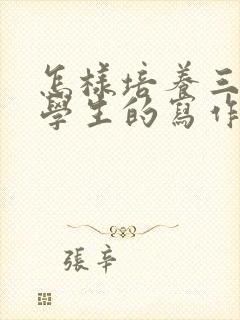 怎樣培養三
學生的寫作
張辛